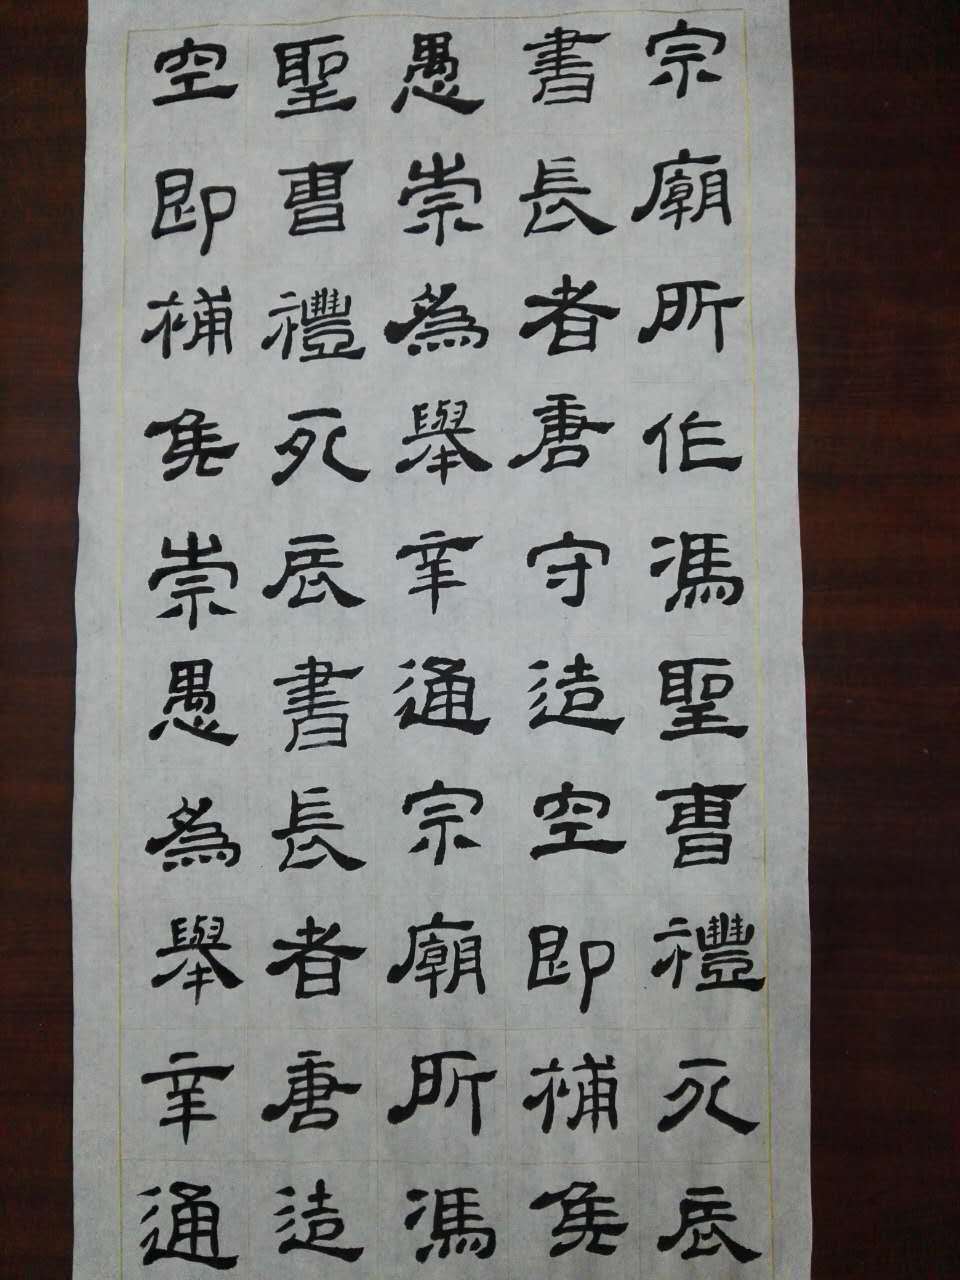 宗廟所作馮聖曹禮死辰
書長者唐守造空即補
愚崇為舉辛通宗廟所馮
聖曹禮死辰書長者唐造
空即補崇愚為舉辛通